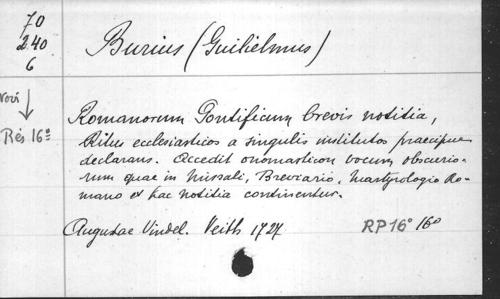 70
240
6
Burius (Guilielmus)
Novi
Rés 16°
Romanorum Pontificum brevis notitia,
Ritus ecclesiasticos a singulis institutos praecipue
declarans. Accedit onomasticon vocum obscurio-
rum quae in Missali, Breviario, Martyrologio Ro-
mano et hac notitia continentur.
Augustae Vindel. Veith 1727
RP 16° 16°